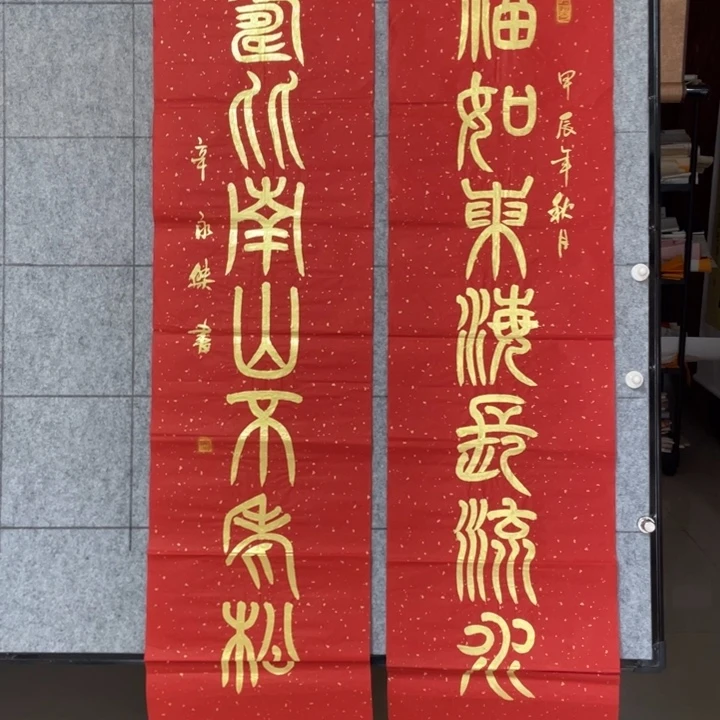 甲辰年秋月
福如東海長流水
壽比南山不老松
辛永傑書